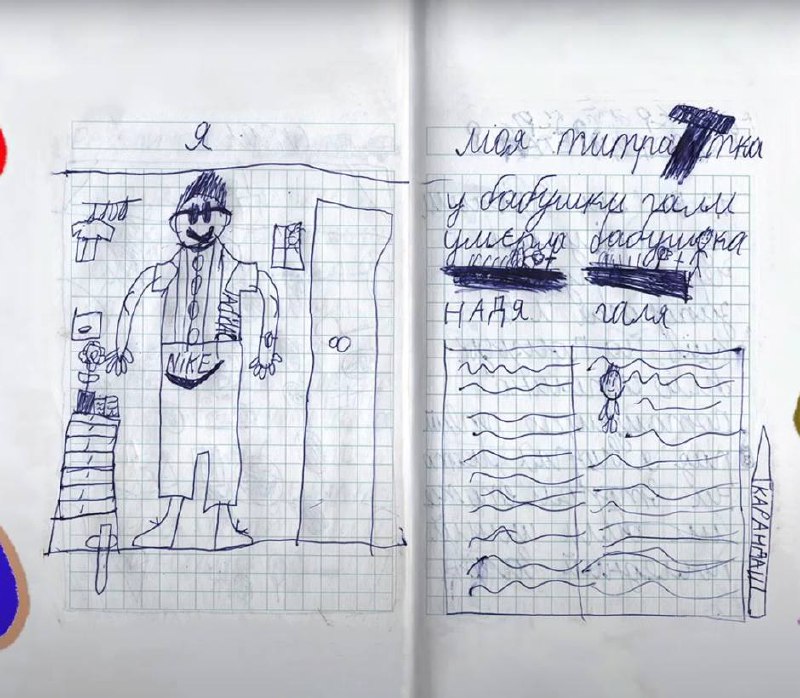 Я
NIKE
моя титраТтка
у бабушки гали
умєрла бабушка
НАДЯ галя
КАРАНДАШ